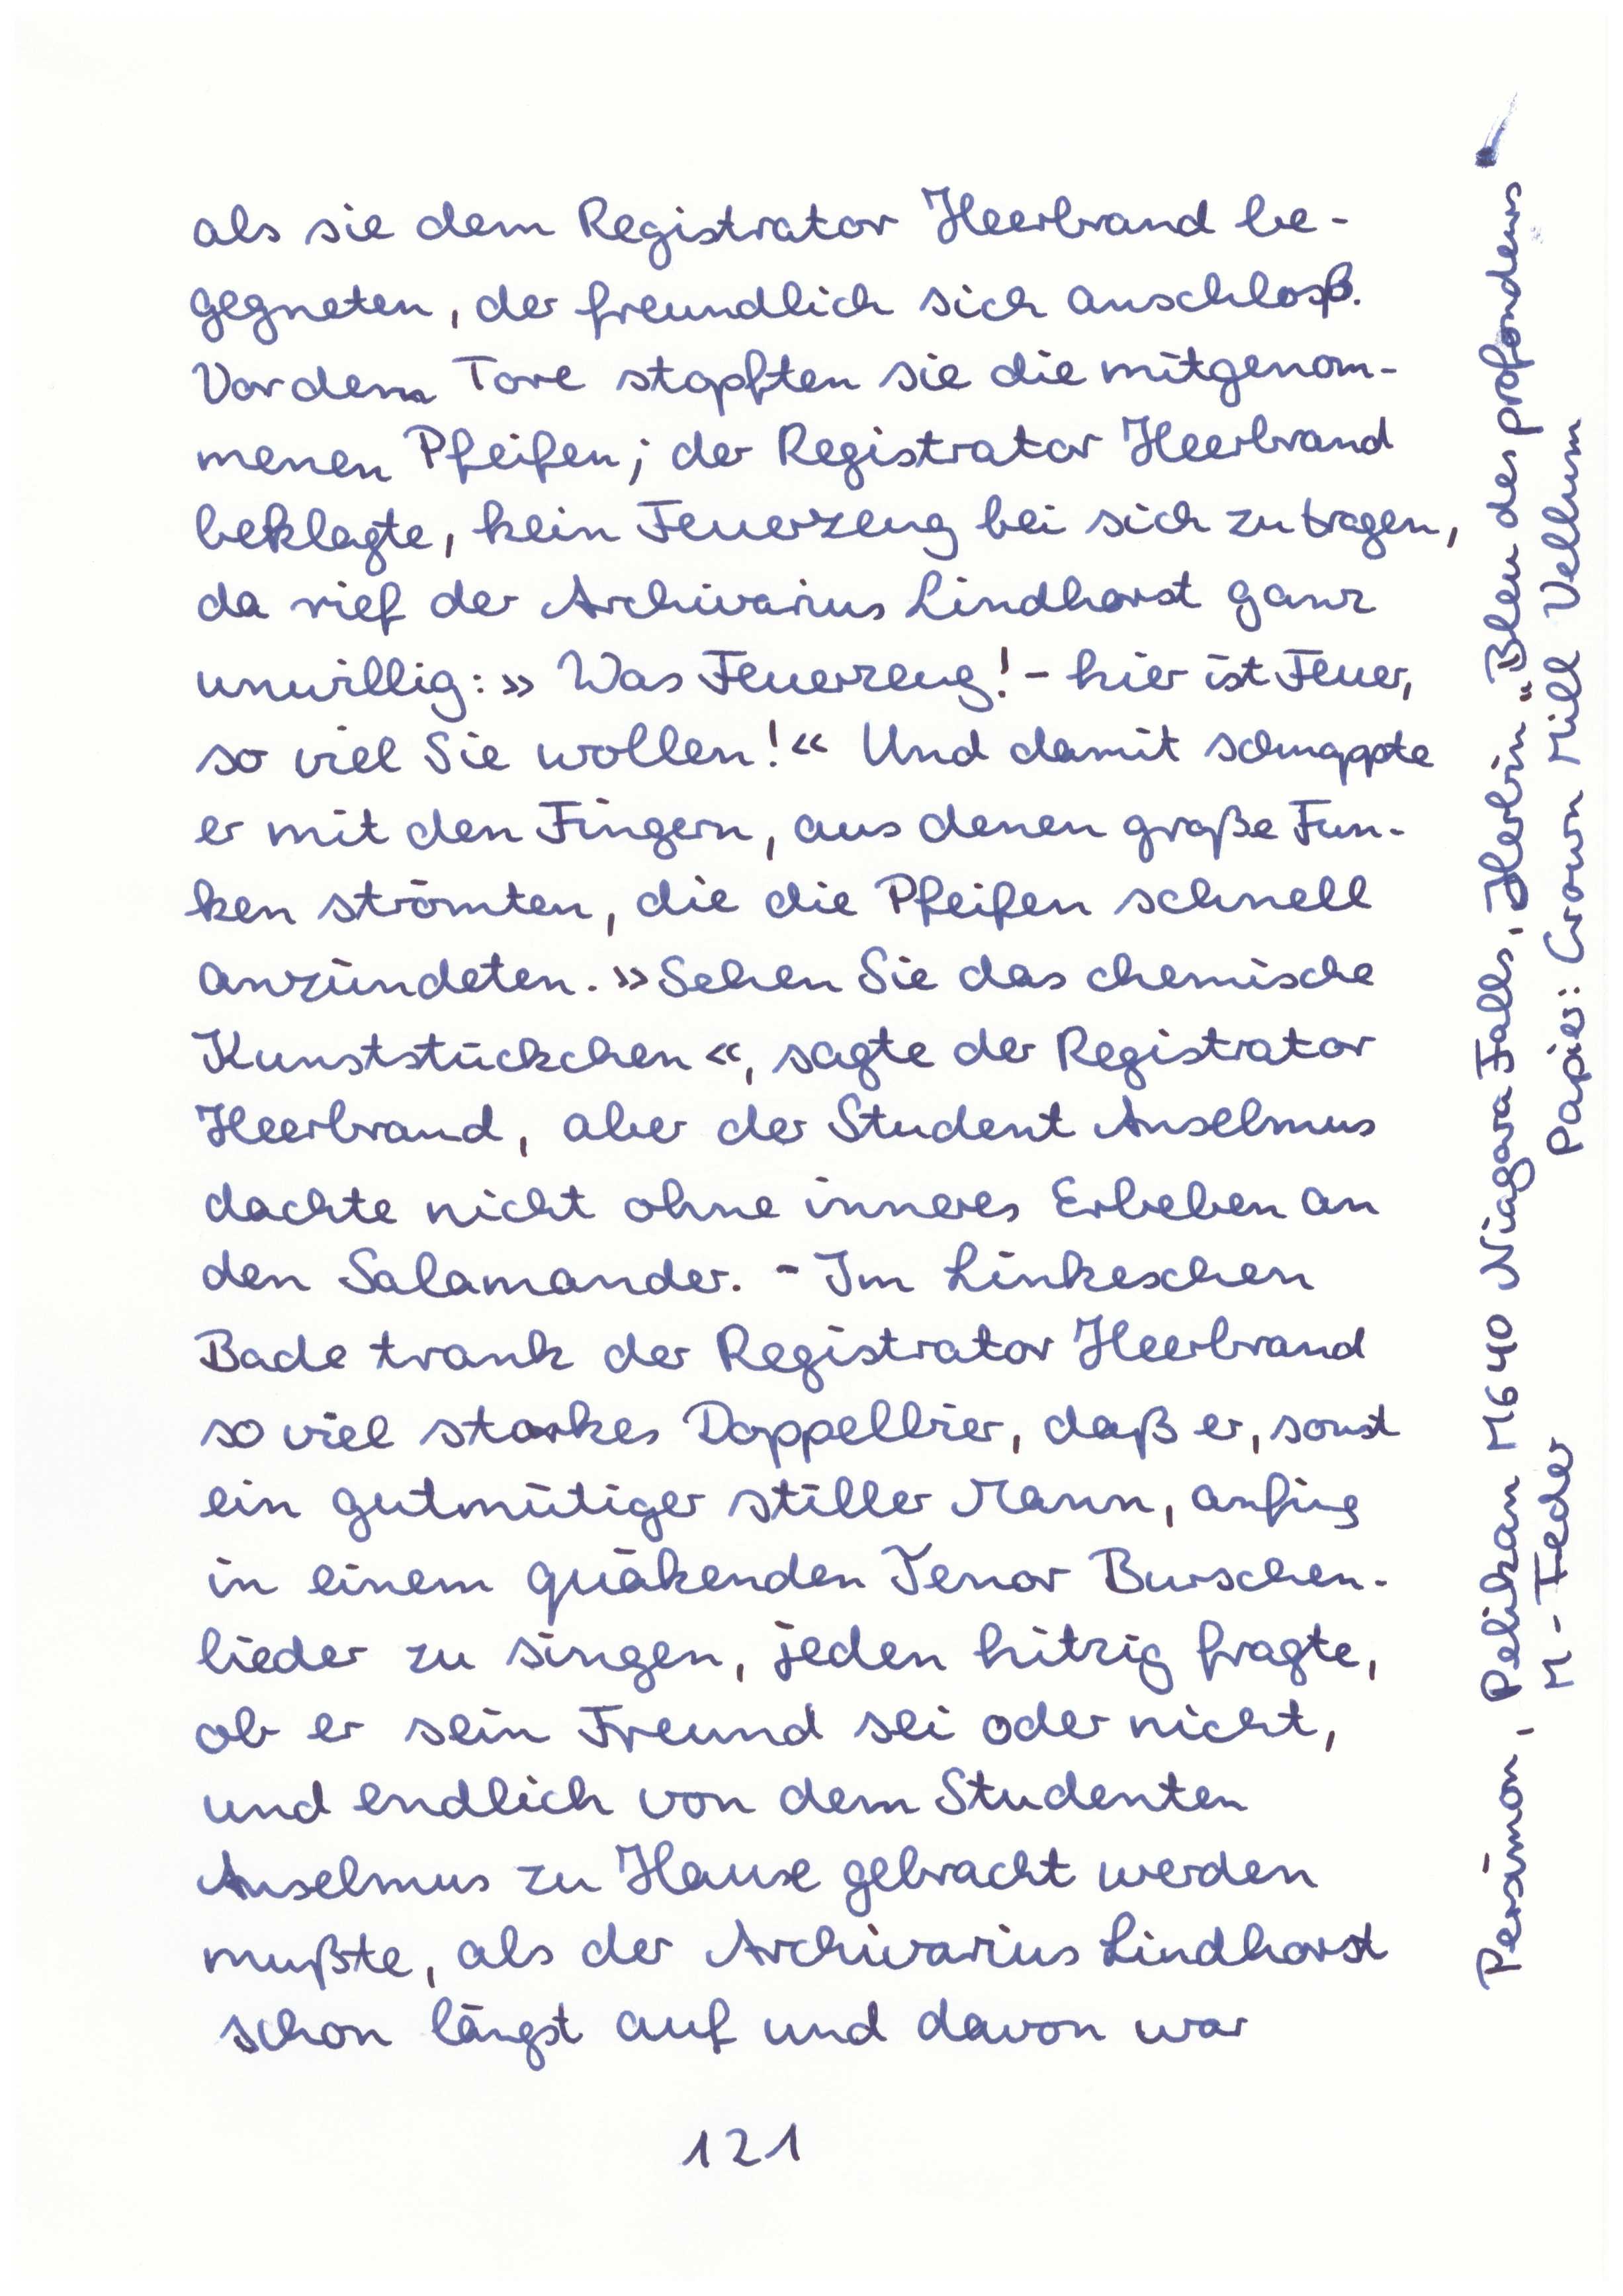 als sie dem Registrator Heerbrand be-
gegneten, der freundlich sich anschloß.
Vor dem Tore stopften sie die mitgenom-
menen Pfeifen; der Registrator Heerbrand
beklagte, kein Feuerzeug bei sich zu tragen,
da rief der Archivarius Lindhorst ganz
unwillig: » Was Feuerzeug! - hier ist Feuer,
so viel Sie wollen!« Und damit schnappte
er mit den Fingern, aus denen große Fun-
ken strömten, die die Pfeifen schnell
anzündeten. » Sehen Sie das chemische
Kunststückchen «, sagte der Registrator
Heerbrand, aber der Student Anselmus
dachte nicht ohne inneres Erbeben an
den Salamander. - Im Linkeschen
Bade trank der Registrator Heerbrand
so viel starkes Doppelbier, daß er, sonst
ein gutmütiger stiller Mann, anfing
in einem quäkenden Tenor Burschen-
lieder zu singen, jeden hitzig fragte,
ob er sein Freund sei oder nicht,
und endlich von dem Studenten
Anselmus zu Hause gebracht werden
mußte, als der Archivarius Lindhorst
schon längst auf und davon war
121
Persimon, Pelikan M640 Niagara Falls, Herbin „Bleu des profondeurs"
M-Feder
Papier: Crown Mill Vellum